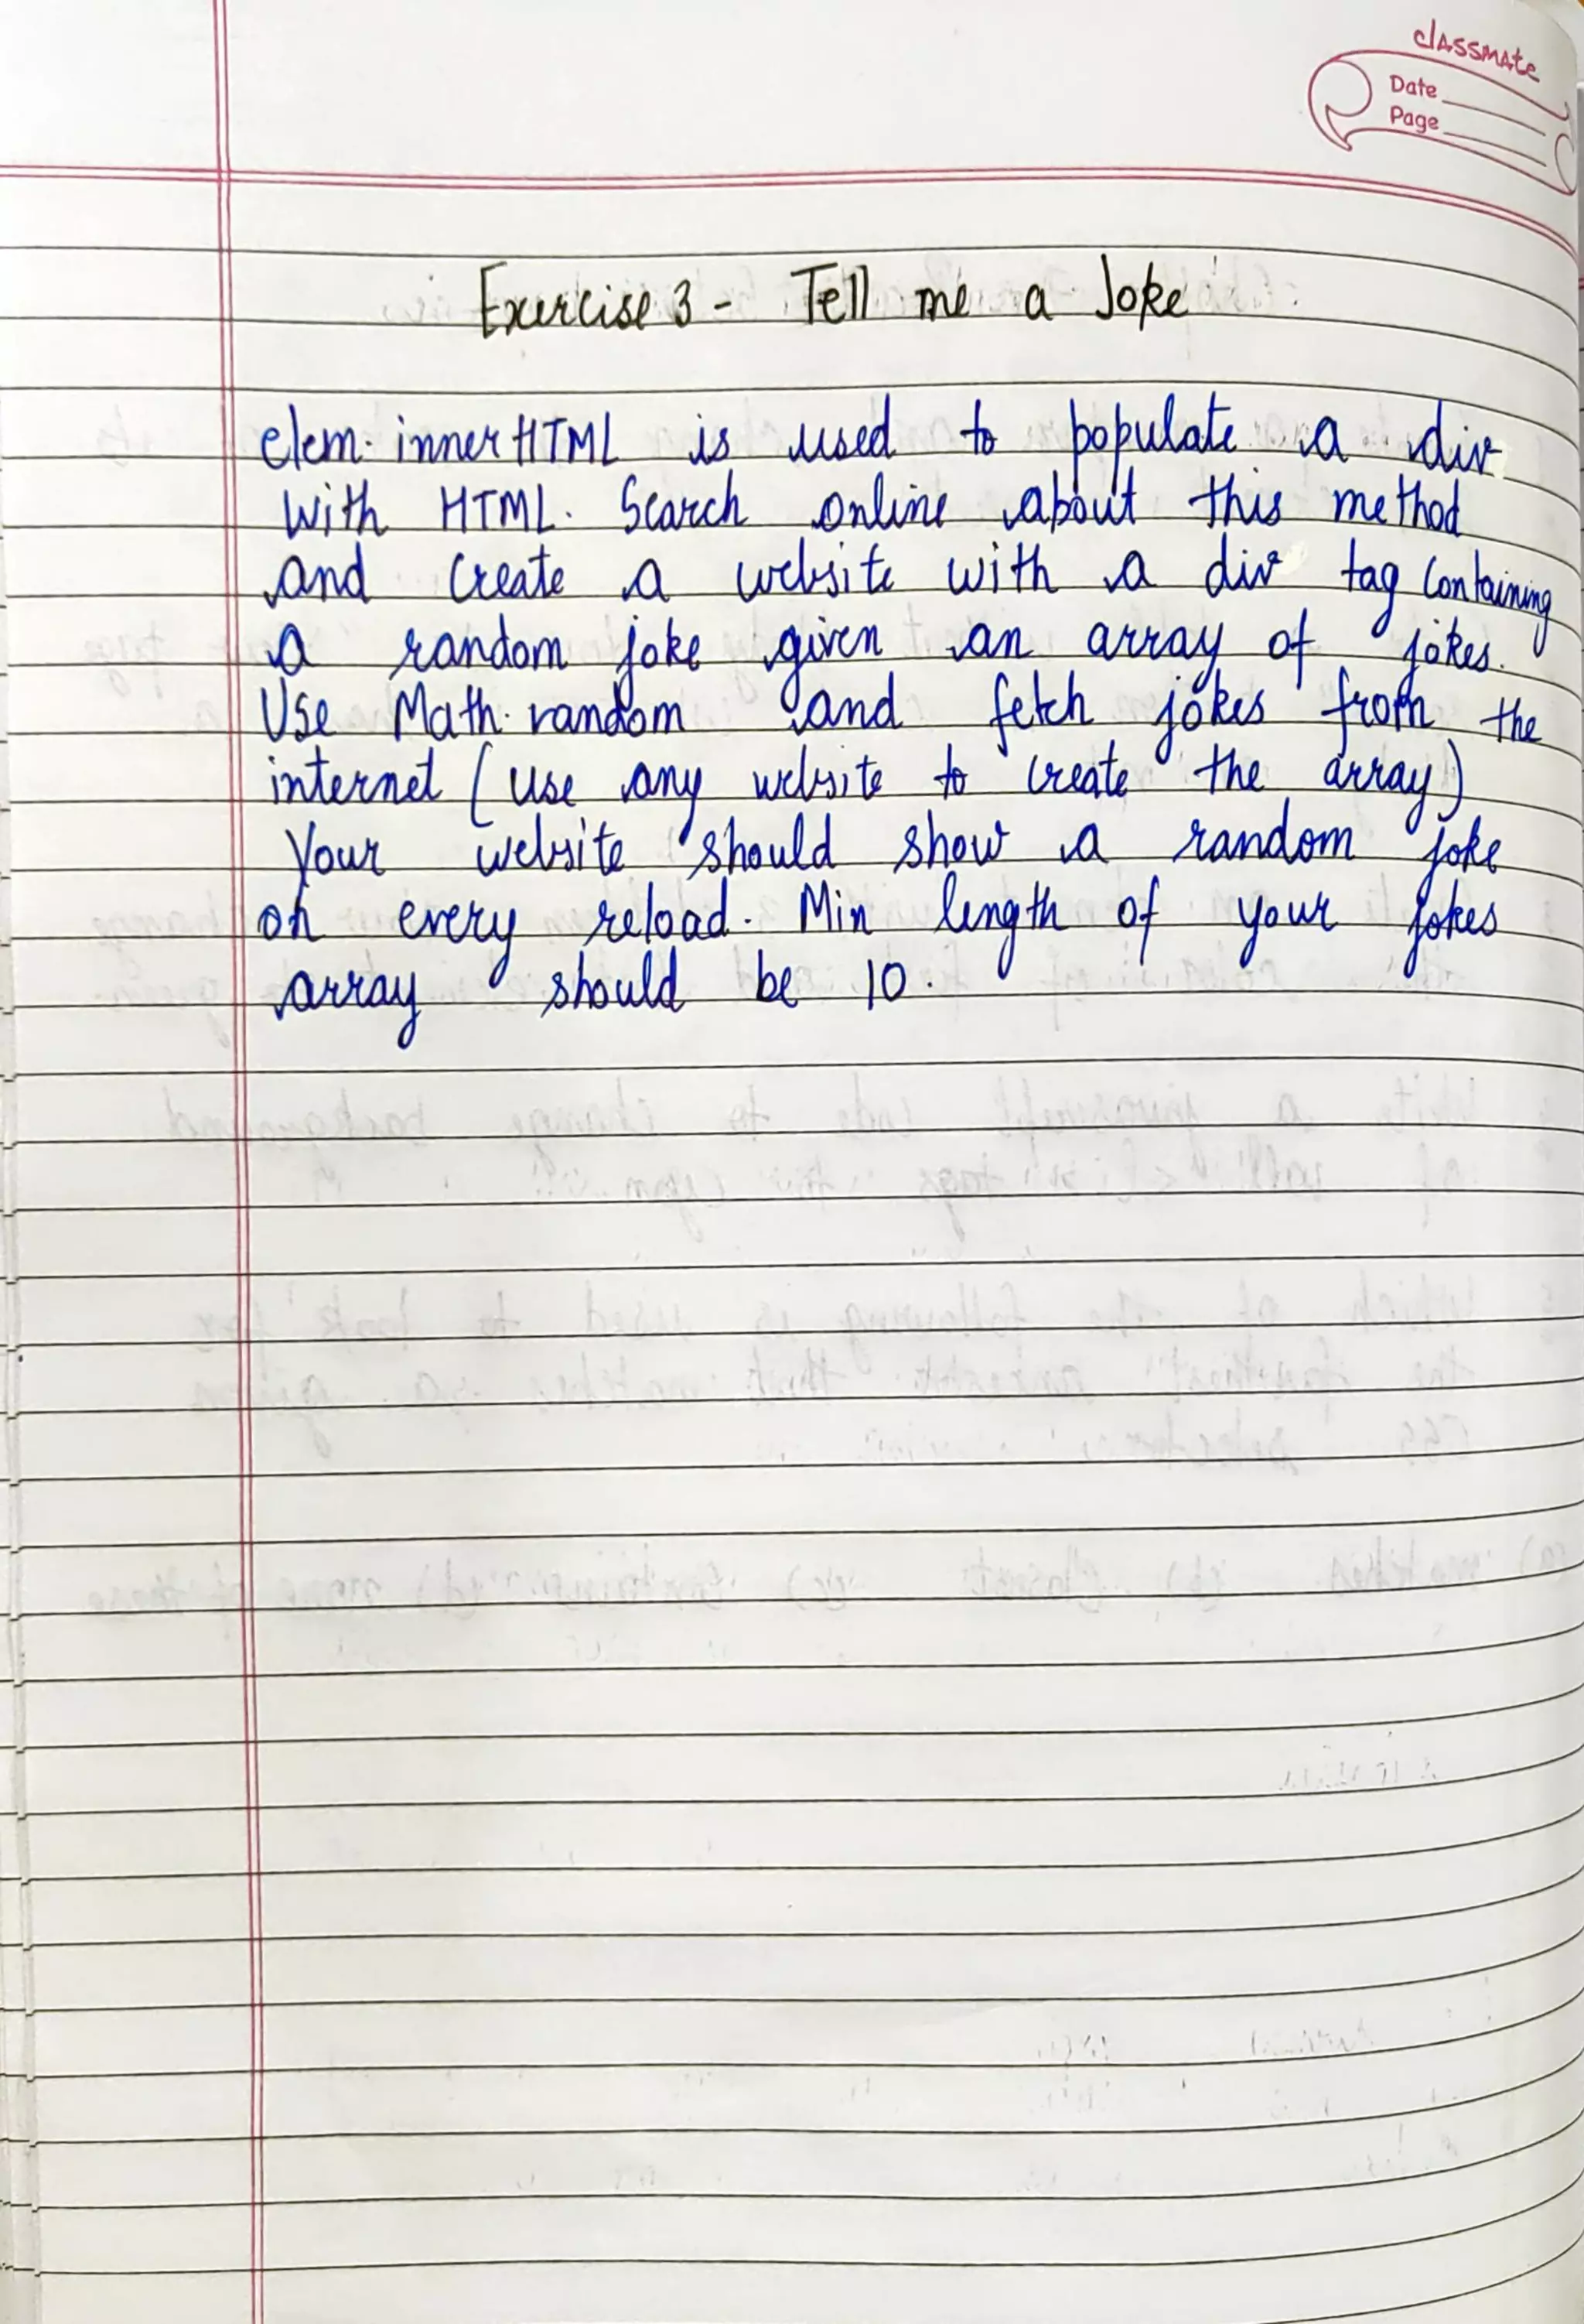 classmate
Date
Page
Exercise 3 - Tell me a Joke
elem. innerHTML is used to populate a div
with HTML. Search online about this method
and create a website with a div tag containing
a random joke given an array of jokes.
Use Math. random and fetch jokes from the
internet (use any website to create the array)
Your website should show a random joke
on every reload. Min length of your jokes
array should be 10.